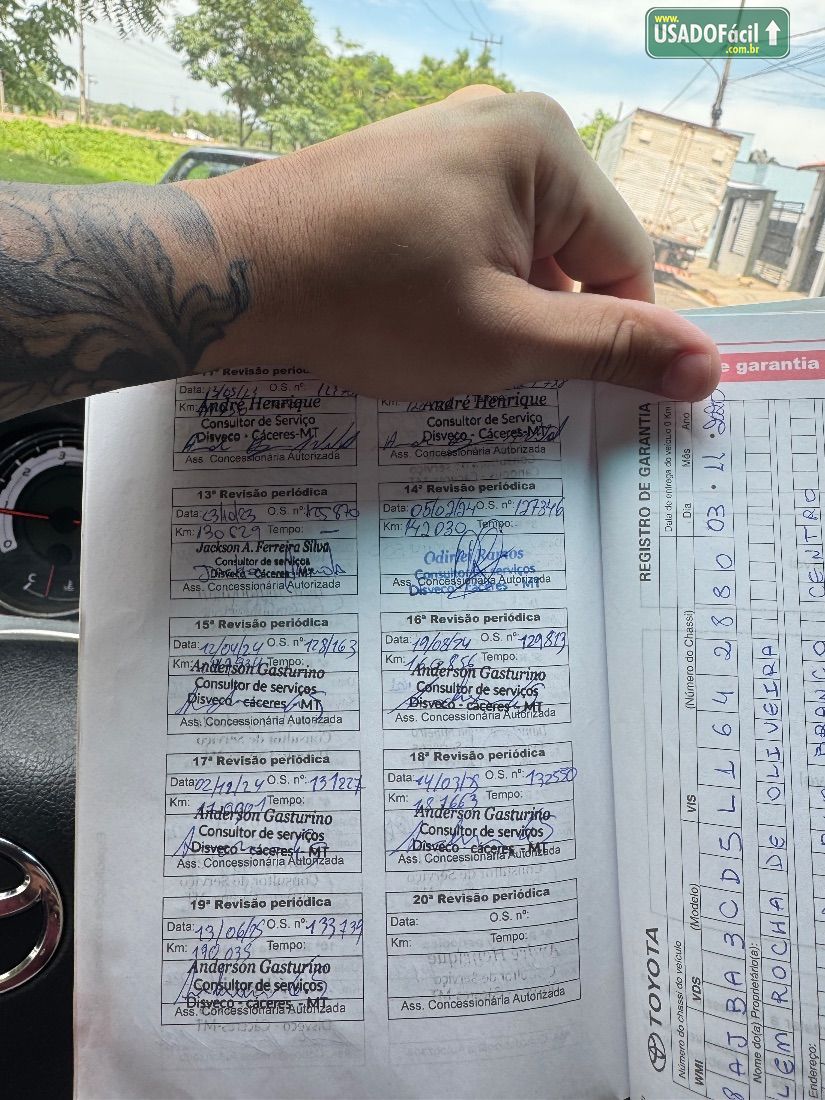 www.
USADOFácil
.com.br
11ª Revisão períod
Data: 13/05/23 O.S. nº:
Km:
André Henrique
Consultor de Serviço
Disveco - Cáceres-MT
Ass. Concessionária Autorizada
Km:
André Henrique
Consultor de Serviço
Disveco - Cáceres-MT
Ass. Concessionária Autorizada
13ª Revisão periódica
Data: O.S. nº: 125870
Km: 130629 Tempo: —
Jackson A. Ferreira Silva
Consultor de serviços
Disveco - Cáceres - MT
Ass. Concessionária Autorizada
14ª Revisão periódica
Data: 05/02/24 O.S. nº: 127346
Km: 142039 Tempo:
Odirlei Ramos
Consultor de serviços
Disveco - Cáceres - MT
Ass. Concessionária Autorizada
15ª Revisão periódica
Data: 12/04/24 O.S. nº: 128163
Km: Tempo:
Anderson Gasturino
Consultor de serviços
Disveco - cáceres - MT
Ass. Concessionária Autorizada
16ª Revisão periódica
Data: 19/08/24 O.S. nº: 129813
Km: Tempo:
Anderson Gasturino
Consultor de serviços
Disveco - cáceres - MT
Ass. Concessionária Autorizada
17ª Revisão periódica
Data: 02/12/24 O.S. nº: 131227
Km: Tempo:
Anderson Gasturino
Consultor de serviços
Disveco - cáceres - MT
Ass. Concessionária Autorizada
18ª Revisão periódica
Data: 14/03/25 O.S. nº: 132550
Km: 181663 Tempo:
Anderson Gasturino
Consultor de serviços
Disveco - cáceres - MT
Ass. Concessionária Autorizada
19ª Revisão periódica
Data: 13/06/25 O.S. nº: 133739
Km: 190035 Tempo:
Anderson Gasturino
Consultor de serviços
Disveco - cáceres - MT
Ass. Concessionária Autorizada
20ª Revisão periódica
Data: O.S. nº:
Km: Tempo:
Ass. Concessionária Autorizada
e garantia
TOYOTA
REGISTRO DE GARANTIA
Número do chassi do veículo
Data de entrega do veículo 0 Km
WMI VDS (Modelo) VIS (Número do Chassi) Dia Mês Ano
8AJBA3CD5L1642880 03 · 11 · 2020
Nome do(a) Proprietário(a):
LEM ROCHA DE OLIVEIRA
Endereço:
BRANCO CENTRO